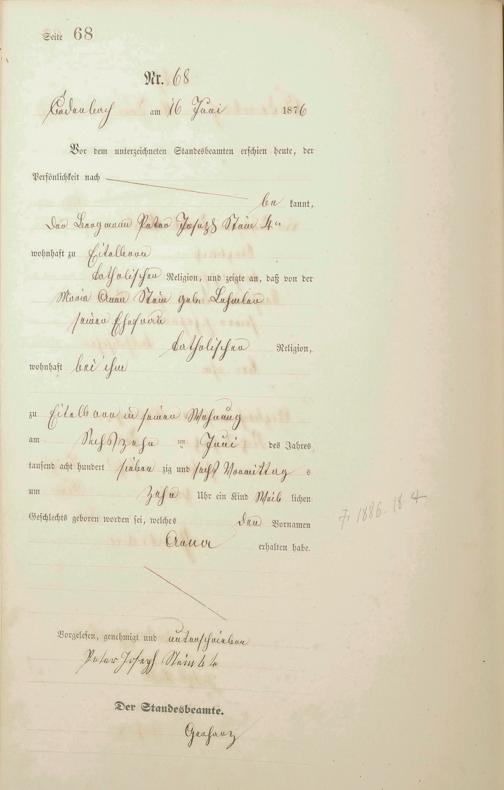 Seite 68
Nr. 68
Cadenbach am 16 Juni 1876
Vor dem unterzeichneten Standesbeamten erschien heute, der
Persönlichkeit nach
be kannt,
der Bergmann Peter Joseph Stein 4r
wohnhaft zu Eitelborn
katholischer Religion, und zeigte an, daß von der
Maria Anna Stein geb.
seiner Ehefrau
katholischer Religion,
wohnhaft bei ihm
zu Eitelborn in seiner Wohnung
am Sechszehn ten Juni des Jahres
tausend acht hundert sieben zig und sechs Vormittag s
um zehn Uhr ein Kind Weib lichen
Geschlechts geboren worden sei, welches den Vornamen
Anna erhalten habe.
7. 1886. 18 4
Vorgelesen, genehmigt und unterschrieben
Peter Joseph Stein 4
Der Standesbeamte.